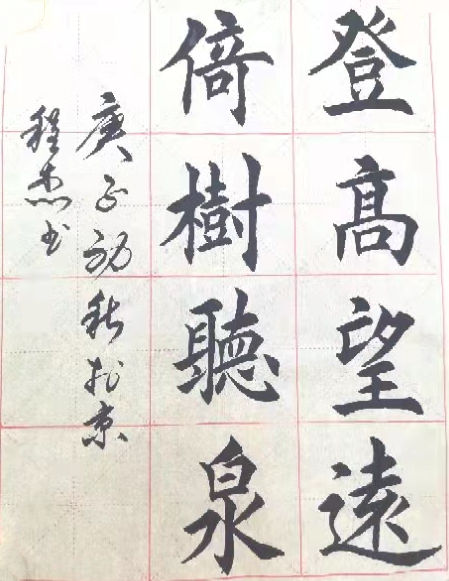 登高望遠
倚樹聽泉
庚子初秋於京
程杰书